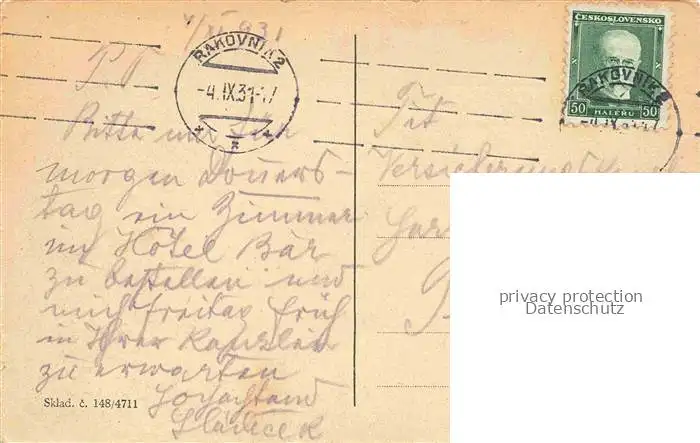 P.T.
Bitte mir für
morgen Donners-
tag ein Zimmer
im Hotel Bär
zu bestellen und
mich freitag früh
in Ihrer Kanzlei
zu erwarten
Hochachtend
Sládeček
Sklad. č. 148/4711
RAKOVNÍK 2
-4.IX.31-17
Tit
ČESKOSLOVENSKO
50 HALÉŘŮ 50
RAKOVNÍK 2
privacy protection
Datenschutz